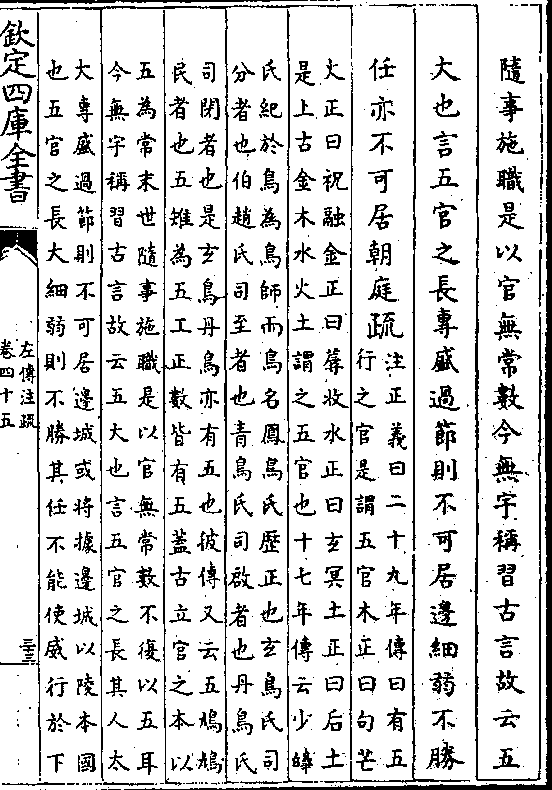 隨事施職是以官無常數今無宇稱習古言故云五
大也言五官之長專盛過節則不可居邊細弱不勝
任亦不可居朝庭疏
注正義曰二十九年傳曰有五
行之官是謂五官木正曰句芒
火正曰祝融金正曰蓐收水正曰玄冥土正曰后土
是上古金木水火土謂之五官也十七年傳云少皞
氏紀於鳥為鳥師而鳥名鳳鳥氏歷正也玄鳥氏司
分者也伯趙氏司至者也青鳥氏司啟者也丹鳥氏
司閉者也是玄鳥丹鳥亦有五也彼傳又云五鳩鳩
民者也五雉為五工正數皆有五蓋古立官之本以
五為常末世隨事施職是以官無常數不復以五耳
今無宇稱習古言故云五大也言五官之長其人太
大專盛過節則不可居邊城或將據邊城以陵本國
也五官之長大細弱則不勝其任不能使威行於下
欽定四庫全書
左傳注疏
卷四十五